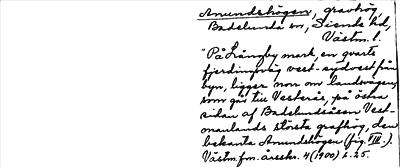 Anundshögen, gravhög,
Badelunda sn, Siende hd,
Västm. l.
"På Långby mark, en qvarts
fjerdingsväg vest-sydvest från
byn, ligger norr om landsvägen,
som går till Vesterås, på östra
sidan af Badelundaåsen Vest-
manlands största grafhög, den
bekanta Anundshögen (fig. VIII.).
Västm. fm. årsskr. 4 (1900) s. 25.